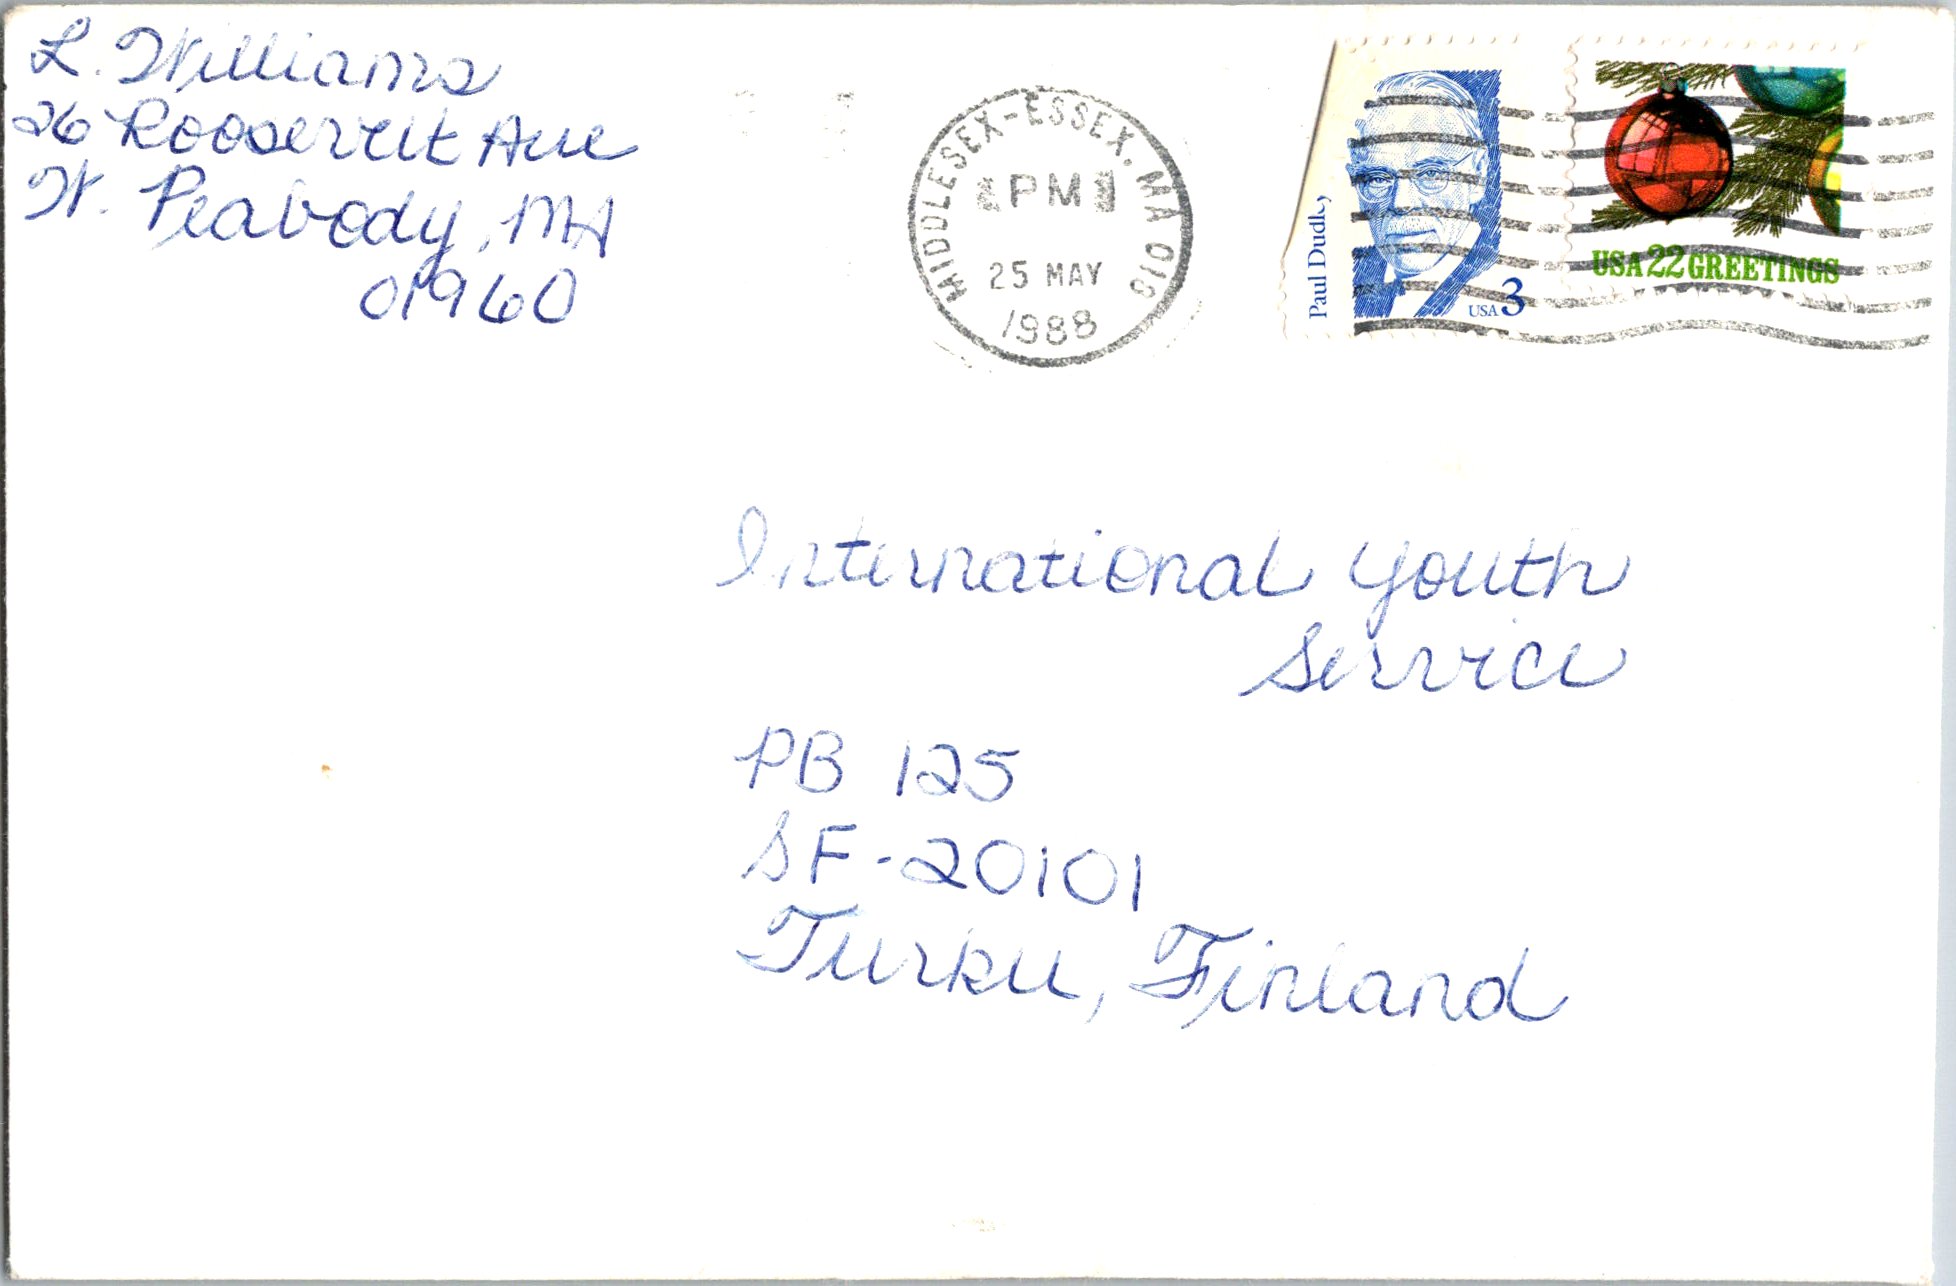 L. Williams
26 Roosevelt Ave
W. Peabody, MA
01960
MIDDLESEX-ESSEX, MA 018
PM
25 MAY
1988
Paul Dudley
USA 3
USA 22 GREETINGS
International Youth
Service
PB 125
SF-20101
Turku, Finland